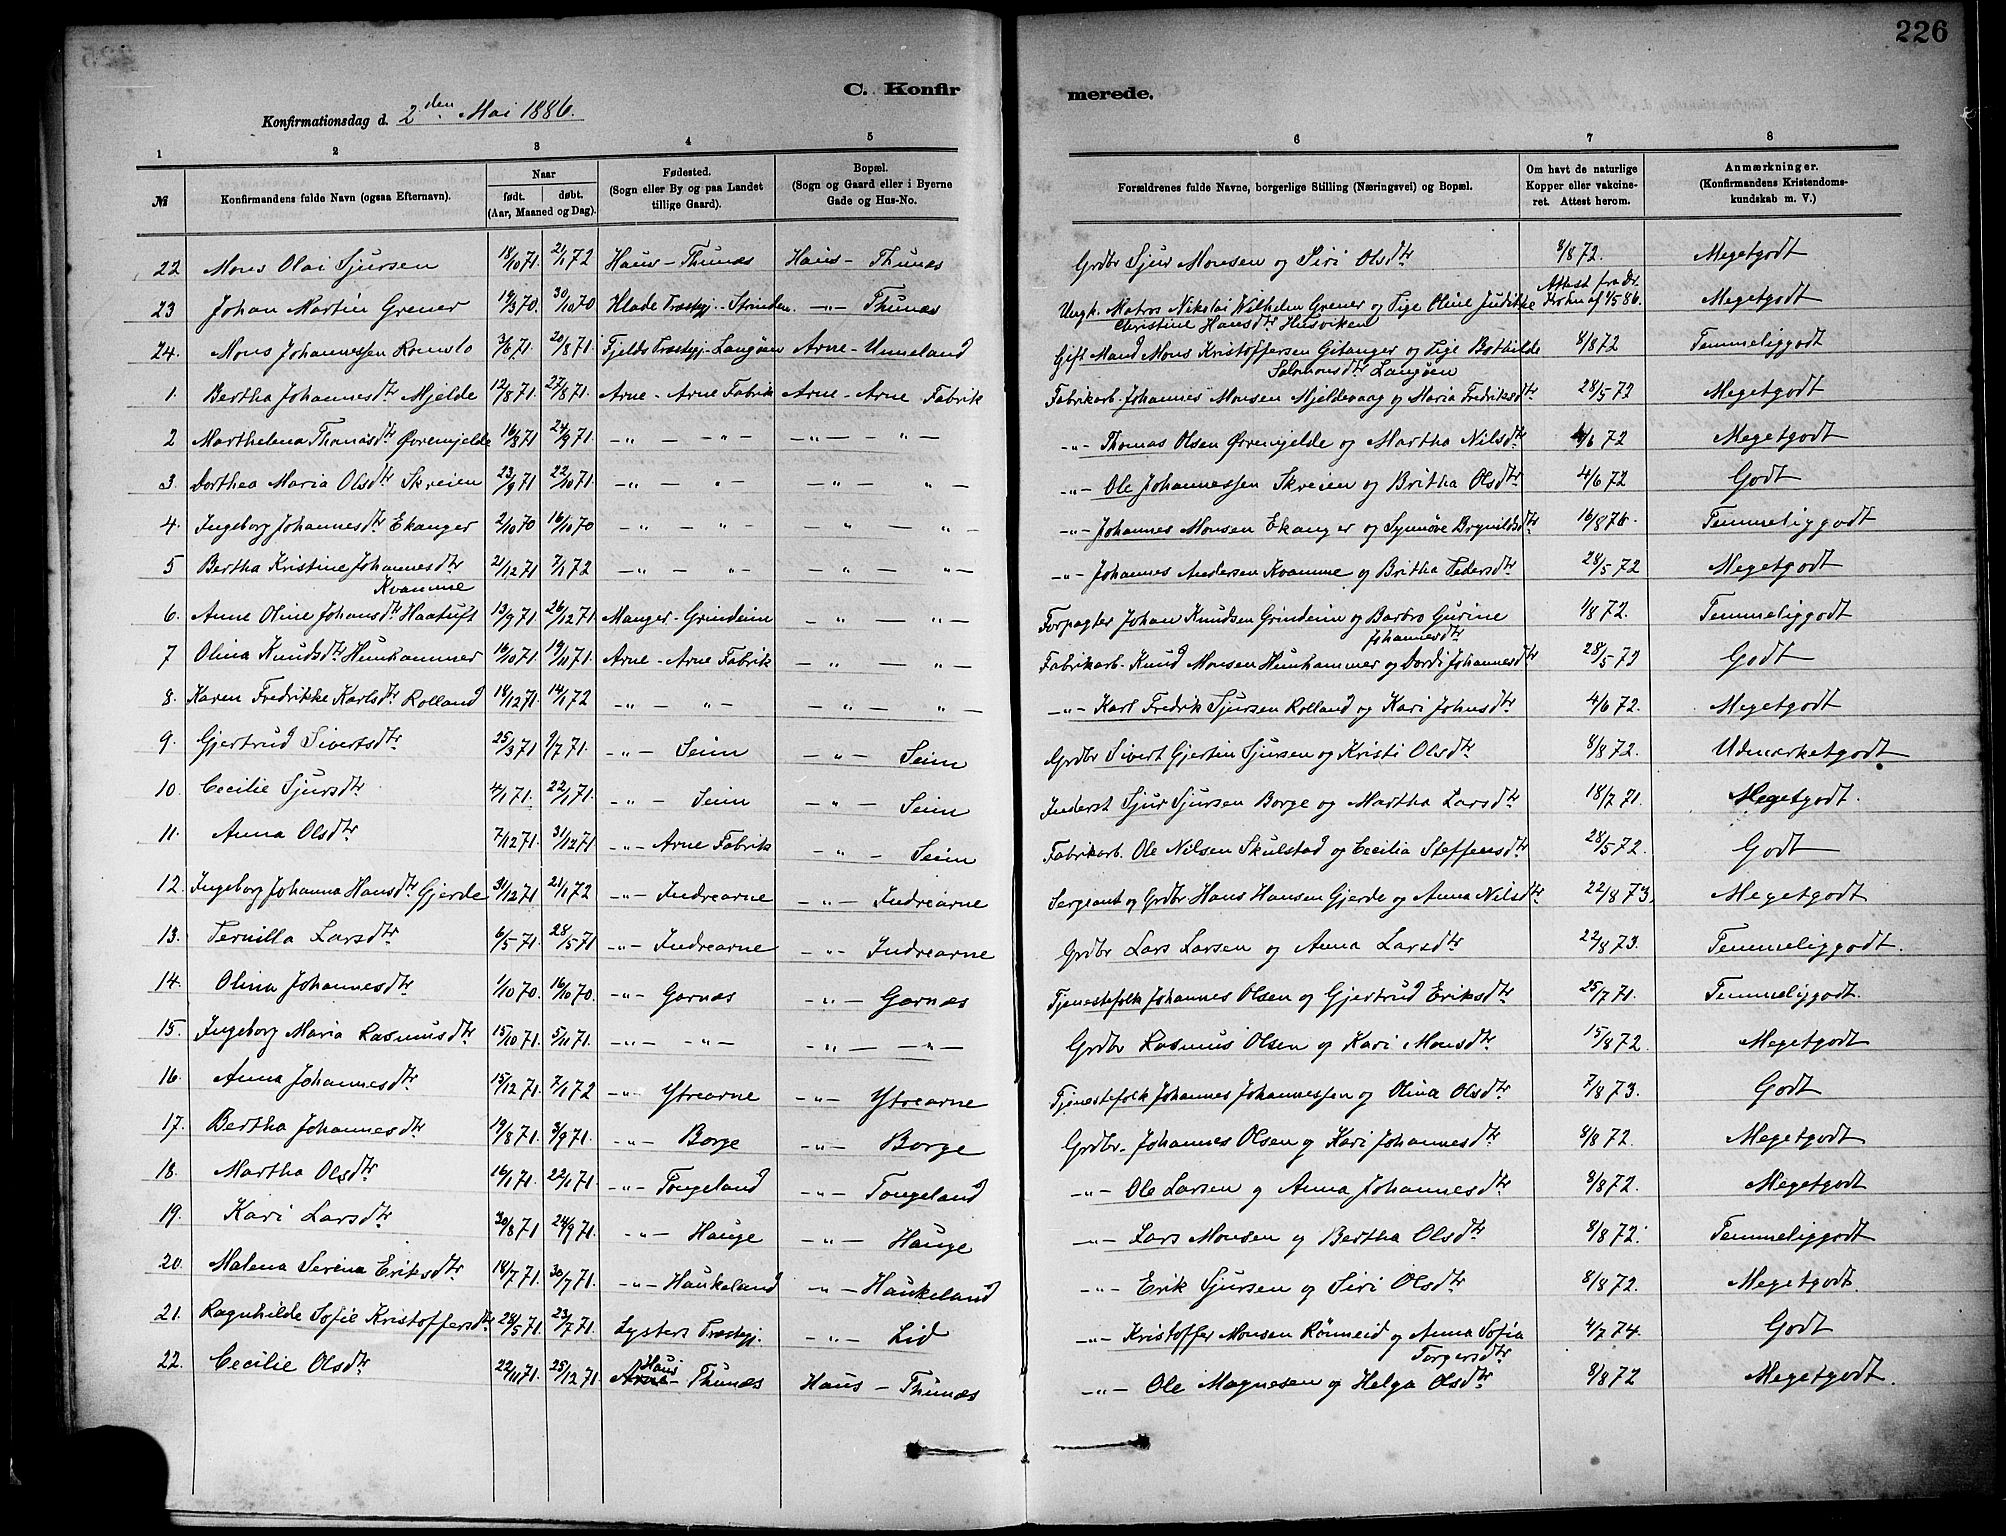 226
C. Konfirmerede.
Konfirmationsdag d. 2den Mai 1886.
1 2 3 4 5 6 7 8
№ Konfirmandens fulde Navn (ogsaa Efternavn). Naar født. døbt. (Aar, Maaned og Dag). Fødested. (Sogn eller By og paa Landet tillige Gaard). Bopæl. (Sogn og Gaard eller i Byerne Gade og Hus-No. Forældrenes fulde Navne, borgerlige Stilling (Næringsvei) og Bopæl. Om havt de naturlige Kopper eller vakcineret. Attest herom. Anmærkninger. (Konfirmandens Kristendomskundskab m. V.)
22 Mons Olai Sjursen 18/10 71. 21/1 72 Haus - Thunæs Haus - Thunæs Grdbr Sjur Monsen og Siri Olsdtr 8/8 72. Megetgodt
23 Johan Martin Grener 19/3 70. 30/10 70 Hlade Præstgj. - Strinden -"- Thunæs Ungk. Matros Nikolai Wilhelm Grener og Pige Oline Juditke Christine Hansdtr Husviken Attest fra Dr. 1/5 86. Megetgodt
24. Mons Johannessen Romslo 3/6 71. 20/8 71. Fjelds Præstgj. - Langøen Arne - Unneland Gift Mand Mons Kristoffersen Gitanger og Pige Bothilde Salomonsdtr Langøen 8/8 72 Temmeliggodt
1. Bertha Johannesdtr Mjelde 12/8 71. 27/8 71. Arne - Arne Fabrik Arne - Arne Fabrik Fabrikarb. Johannes Monsen Mjeldevaag og Maria Fredriksdtr 28/5 72 Megetgodt
2 Marthelena Thomasdtr Øvremjelde 16/8 71 24/9 71. -"- - -"- -"- - " - -"- Thomas Olsen Øvremjelde og Martha Nilsdtr 4/6 72 Megetgodt
3. Dorthea Maria Olsdtr Skreien 23/9 71 22/10 71. -"- - " - -"- - " - -"- Ole Johannessen Skreien og Britha Olsdtr 4/6 72 Godt
4. Ingeborg Johannesdtr Ekanger 2/10 70 16/10 70 -"- - " - -"- - " - -"- Johannes Monsen Ekanger og Synnøve Brynildsdtr 16/8 76. Temmeliggodt
5 Bertha Kristine Johannesdtr Kvamme 21/12 71 7/1 72 -"- - " - -"- - " - -"- Johannes Andersen Kvamme og Britha Pedersdtr 28/5 72 Megetgodt
6. Anne Oline Johansdtr Haatuft 13/9 71 26/12 71. Manger - Grindeim - " - " - Forpagter Johan Knudsen Grindeim og Barbro Gurine Johannesdtr 1/8 72. Temmeliggodt
7 Olina Knudsdtr Humhammer 10/10 71. 19/10 71. Arne - Arne Fabrik - " - " - Fabrikarb. Knud Monsen Humhammer og Dordi Johannesdtr 28/5 72 Godt
8. Karen Fredrikke Karlsdtr Rolland 18/12 71. 14/1 72 -"- - " - - " - " - -"- Karl Fredrik Sjursen Rolland og Kari Johnsdtr 4/6 72. Megetgodt
9. Gjertrud Sivertsdtr 25/3 71 9/7 71. -"- Seim - " - Seim Grdbr Sivert Gjertin Sjursen og Kristi Olsdtr 8/8 72. Udmærketgodt
10. Cecilie Sjursdtr 4/1 71. 22/1 71. -"- Seim - " - Seim Inderst Sjur Sjursen Borge og Martha Larsdtr 18/7 71. Megetgodt.
11. Anna Olsdtr 7/12 71. 31/12 71 -"- Arne Fabrik - " - Seim Fabrikarb. Ole Nilsen Skulstad og Cecilia Steffensdtr 28/5 72. Godt
12. Ingeborg Johanna Hansdtr Gjerde 31/12 71 21/1 72 -"- Indrearne -"- Indrearne Sergeant og Grdbr Hans Hansen Gjerde og Anna Nilsdtr 22/8 73. Megetgodt
13. Pernilla Larsdtr 6/5 71. 28/5 71 -"- Indrearne -"- Indrearne Grdbr Lars Larsen og Anna Larsdtr 22/8 73. Temmeliggodt.
14. Olina Johannesdtr 1/10 70. 16/10 70. -"- Garnæs -"- Garnæs Tjenestefolk Johannes Olsen og Gjertrud Eriksdtr 25/7 71. Temmeliggodt.
15. Ingeborg Maria Rasmusdtr 15/10 71. 5/11 71. -"- -"- -"- -"- Grdbr Rasmus Olsen og Kari Monsdtr 15/8 72. Megetgodt
16. Anna Johannesdtr 15/12 71. 7/1 72 -"- Ytrearne -"- Ytrearne Tjenestefolk Johannes Johannessen og Olina Olsdtr 7/8 73. Godt
17. Bertha Johannesdtr 19/8 71. 3/9 71. -"- Borge -"- Borge Grdbr. Johannes Olsen og Kari Johannesdtr 8/8 72. Megetgodt
18. Martha Olsdtr 16/1 71. 22/1 71. -"- Tongeland -"- Tongeland -"- Ole Larsen og Anna Johannesdtr 8/8 72. Megetgodt
19. Kari Larsdtr 30/8 71 24/9 71. -"- Hauge -"- Hauge -"- Lars Monsen og Bertha Olsdtr 8/8 72. Temmeliggodt
20. Malena Serina Eriksdtr 18/7 71. 30/7 71. -"- Haukeland -"- Haukeland -"- Erik Sjursen og Siri Olsdtr 8/8 72. Megetgodt.
21. Ragnhilde Sofie Kristoffersdtr 28/5 71. 23/7 71. Lysters Præstgj. -"- Lid -"- Kristoffer Monsen Rönneid og Anna Sofia Torgersdtr 4/7 74. Godt
22. Cecilie Olsdtr 22/11 71. 25/12 71 Arne Haus - Thunæs Haus - Thunæs -"- Ole Magnesen og Helga Olsdtr 8/8 72 Megetgodt.